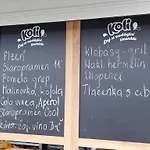 Kofi
Plzeň
Staropramen 11°
Pomelo grep
Malinovka, kofola
Cola vieca, Aperol
Staropramen Cool
káva čaj víno
Kofi
klobásy - gril
Nakl. hermelín
Utopenci
Tlačenka s cib